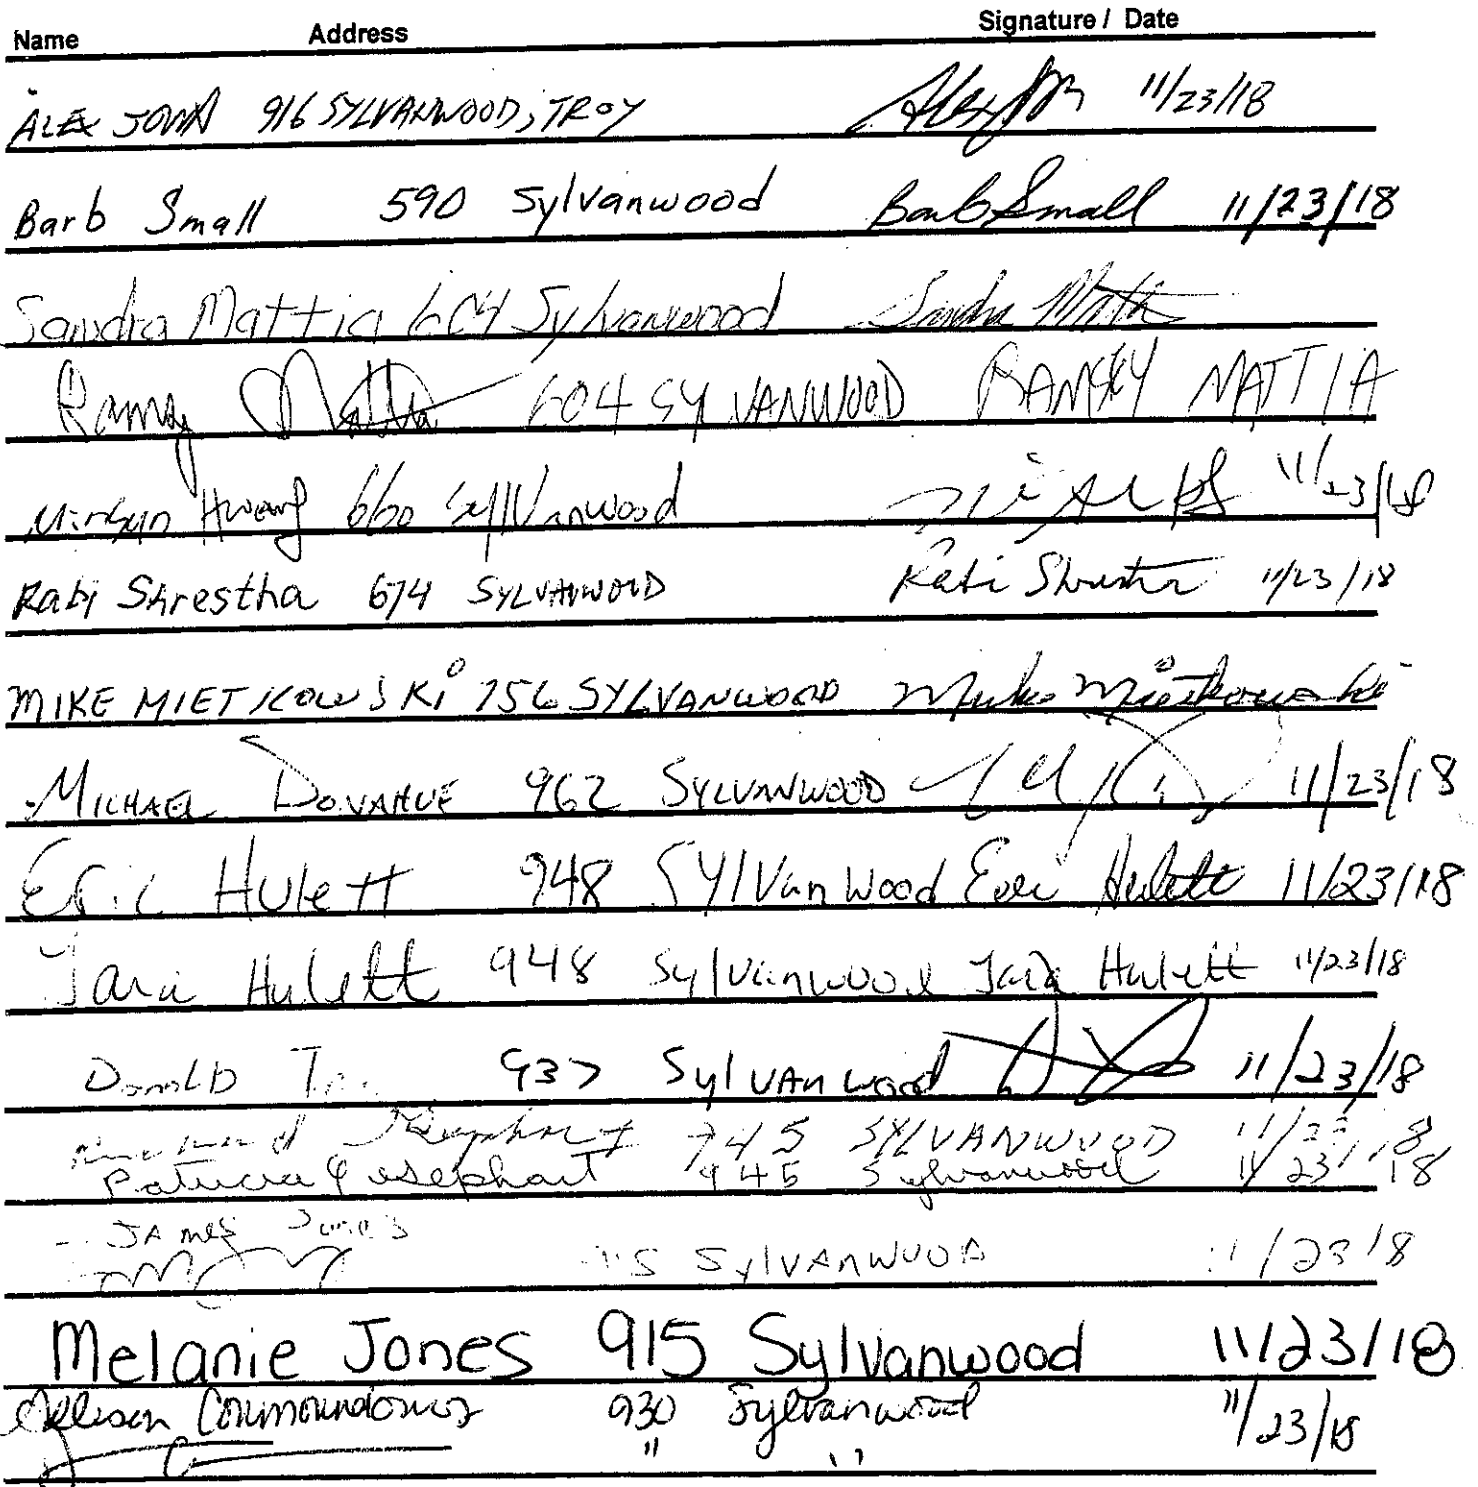 Name Address Signature / Date
ALEX JOHN 916 SYLVANWOOD, TROY 11/23/18
Barb Small 590 Sylvanwood Barb Small 11/23/18
Sandra Mattia 604 Sylvanwood Sandra Mattia
Ramsy Mattia 604 SYLVANWOOD RAMSEY MATTIA
Hwang 660 Sylvanwood 11/23/18
Rabi Shrestha 674 SYLVANWOOD Rabi Shrestha 11/23/18
MIKE MIETKOWSKI 756 SYLVANWOOD Mike Mietkowski
MICHAEL DONAHUE 962 SYLVANWOOD 11/23/18
Eric Hulett 948 SYlVanWood Eric Hulett 11/23/18
Tara Hulett 948 Sylvanwood Tara Hulett 11/23/18
DonalD 937 SylvAnwood 11/23/18
745 SYLVANWOOD 11/23/18
Patricia Gesephart 945 Sylvanwood 11/23/18
JAmes Jones
SylVAnWOOD 11/23/18
Melanie Jones 915 Sylvanwood 11/23/18
930 Sylvanwood 11/23/18
" "